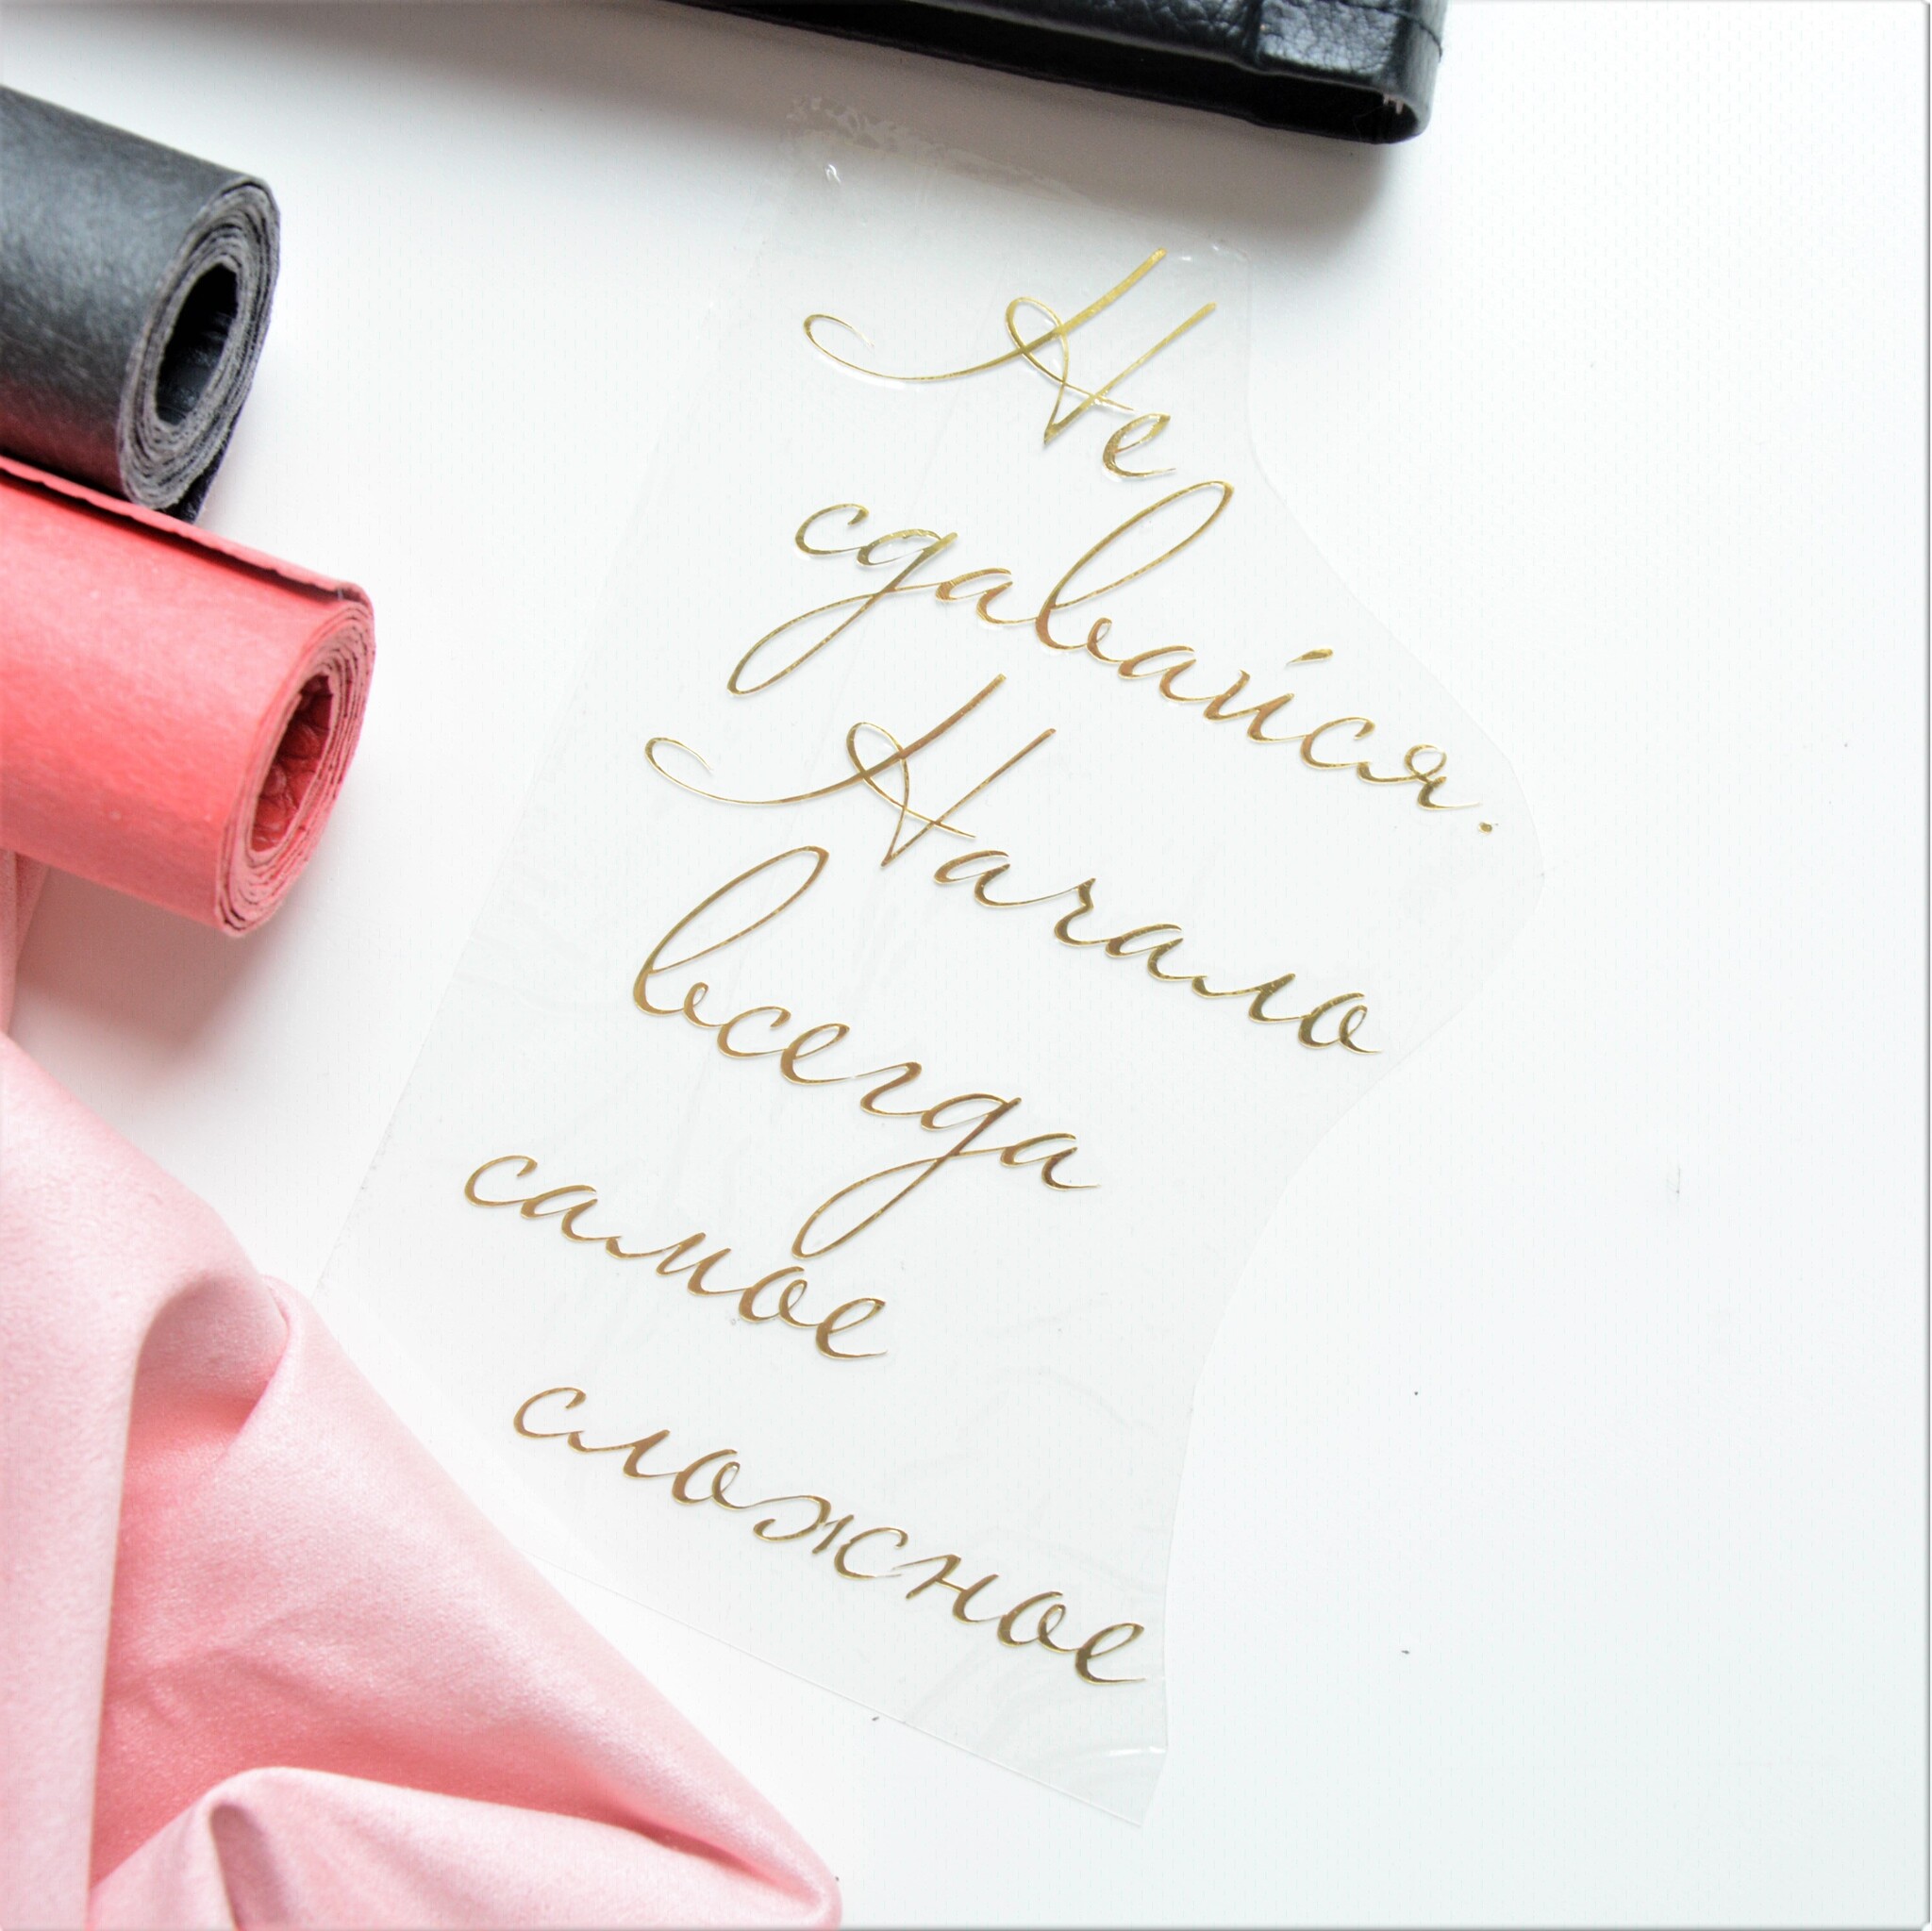 Не
сдавайся.
Начало
всегда
самое
сложное